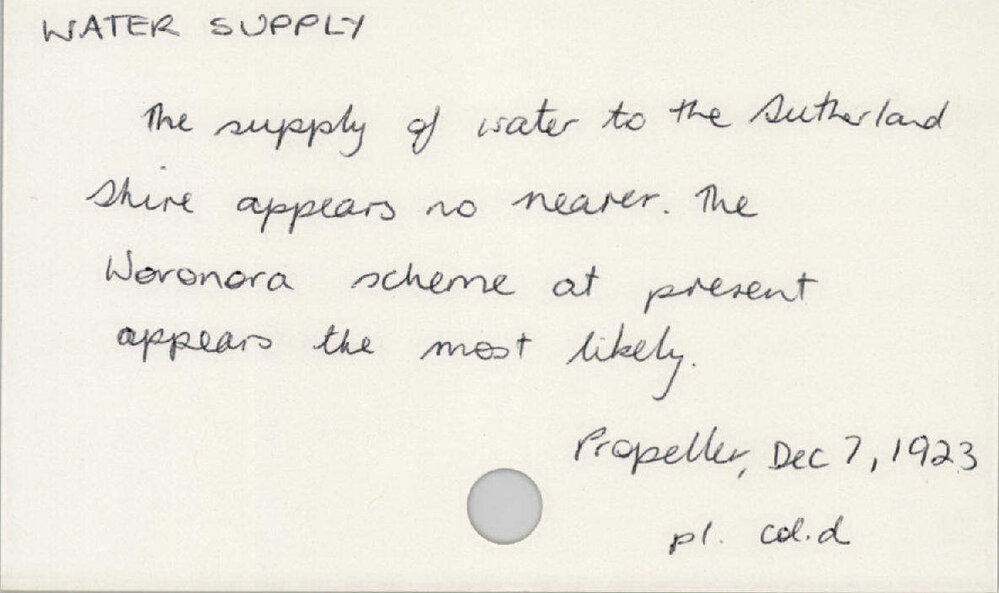 WATER SUPPLY
The supply of water to the Sutherland
Shire appears no nearer. The
Woronora scheme at present
appears the most likely.
Propeller, Dec 7, 1923
p1. col.d